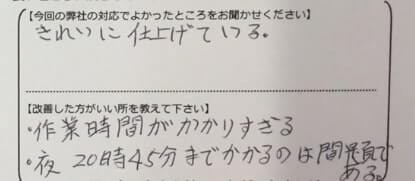 【今回の弊社の対応でよかったところをお聞かせください】
きれいに仕上げている。
【改善した方がいい所を教えて下さい】
・作業時間がかかりすぎる
・夜 20時45分までかかるのは問題で
ある。